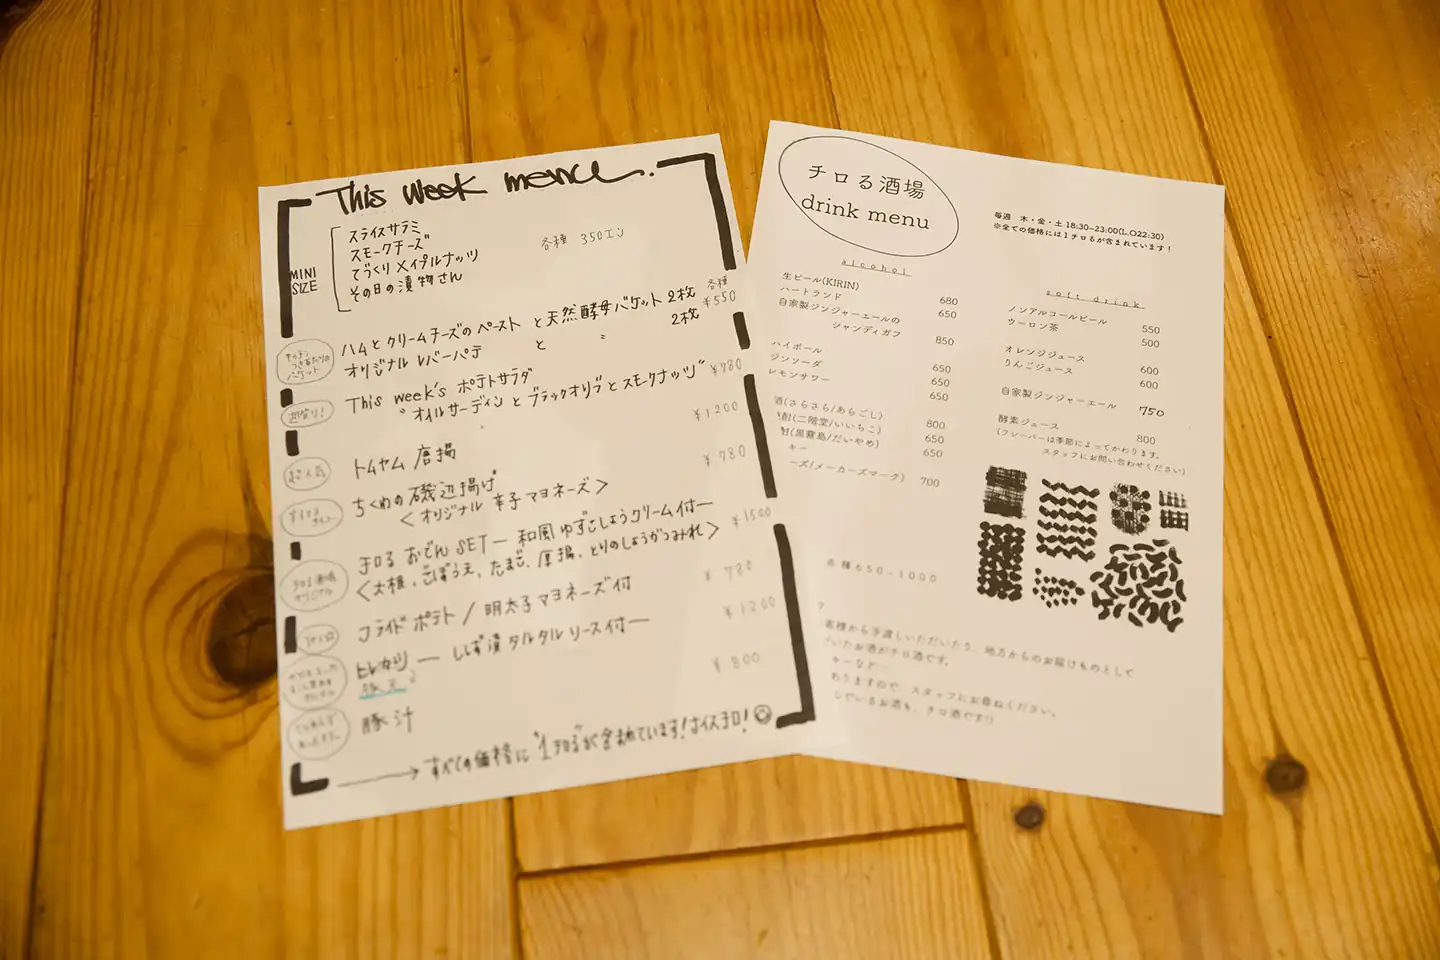 This week menu.
MINI SIZE
スライスサラミ
スモークチーズ
てづくりメイプルナッツ
その日の漬物さん
各種 350エン
ハムとクリームチーズのペースト と天然酵母バケット 2枚
各種 ¥550
オリジナルレバーパテ と 〃 2枚
This week's ポテトサラダ ¥780
"オイルサーディンとブラックオリーブとスモークナッツ"
トムヤム唐揚 ¥1200
ちくわの磯辺揚げ ¥780
<オリジナル辛子マヨネーズ>
チロる おでんSET ー 和風ゆずこしょうクリーム付ー
<大根、ごぼう天、たまご、厚揚、とりのしょうがつみれ> ¥1500
フライドポテト / 明太子マヨネーズ付 ¥780
ヒレカツ ー しば漬タルタルソース付ー ¥1200
豚汁 ¥800
すべての価格に"1チロる"が含まれています!ナイスチロ!
チロる酒場
drink menu
毎週 木・金・土 18:30-23:00(L.O22:30)
※全ての価格には1チロるが含まれています!
alcohol
生ビール(KIRIN) 680
ハートランド 650
自家製ジンジャーエールの
シャンディガフ 850
ハイボール 650
ジンソーダ 650
レモンサワー 650
酒(さらさら/あらごし) 800
酎(二階堂/いいちこ) 650
酎(黒霧島/だいやめ) 650
キー
ーズ/メーカーズマーク) 700
各種650-1000
soft drink
ノンアルコールビール 550
ウーロン茶 500
オレンジジュース 600
りんごジュース 600
自家製ジンジャーエール 750
酵素ジュース 800
(フレーバーは季節によってかわります。
スタッフにお問い合わせください)
客様から手渡しいただいたり、地方からのお届けものとして
いたお酒がチロ酒です。
キーなど…
ありますので、スタッフにお尋ねください。
しているお酒も、チロ酒です!!